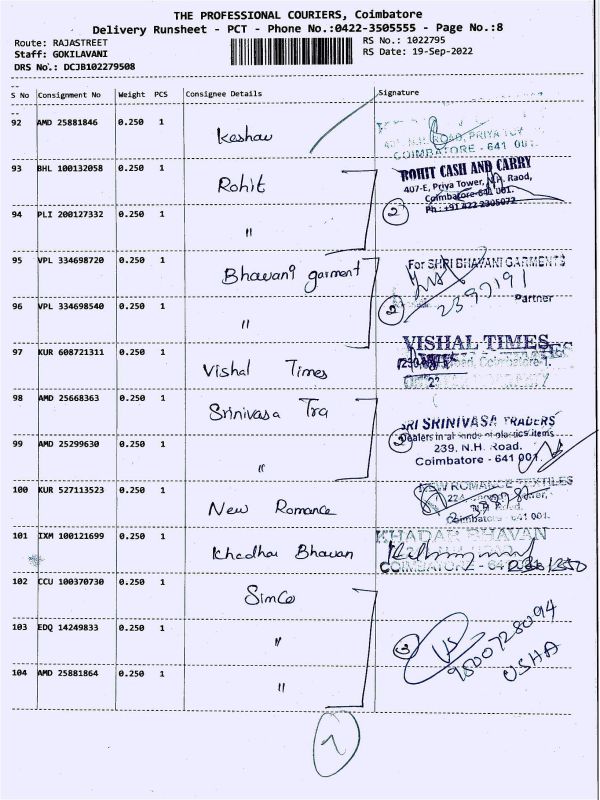 THE PROFESSIONAL COURIERS, Coimbatore
Delivery Runsheet - PCT - Phone No.:0422-3505555 - Page No.:8
Route: RAJASTREET
Staff: GOKILAVANI
DRS No.: DCJB102279508
RS No.: 1022795
RS Date: 19-Sep-2022
S No Consignment No Weight PCS Consignee Details Signature
92 AMD 25881846 0.250 1 Keshav
N.H. ROAD, PRIYA
COIMBATORE - 641 001.
93 BHL 100132058 0.250 1 Rohit
ROHIT CASH AND CARRY
407-E, Priya Tower, N.H. Raod,
Coimbatore-641 001.
Ph : +91 422 2305072
94 PLI 200127332 0.250 1 "
2
95 VPL 334698720 0.250 1 Bhavani garment
For SHRI BHAVANI GARMENTS
2397191
Partner
96 VPL 334698540 0.250 1 "
2
97 KUR 608721311 0.250 1 Vishal Times
VISHAL TIMES
Coimbatore-1.
98 AMD 25668363 0.250 1 Srinivasa Tra
SRI SRINIVASA TRADERS
Dealers in all kinds of plastics items
239, N.H. Road,
Coimbatore - 641 001.
99 AMD 25299630 0.250 1 "
2
100 KUR 527113523 0.250 1 New Romance
NEW ROMANCE TEXTILES
224, Tower,
N.H. Road,
Coimbatore - 641 001.
101 IXM 100121699 0.250 1 Khadhar Bhavan
KHADAR BHAVAN
COIMBATORE - 64
102 CCU 100370730 0.250 1 Simco
103 EDQ 14249833 0.250 1 "
3
9500728094
USHA
104 AMD 25881864 0.250 1 "